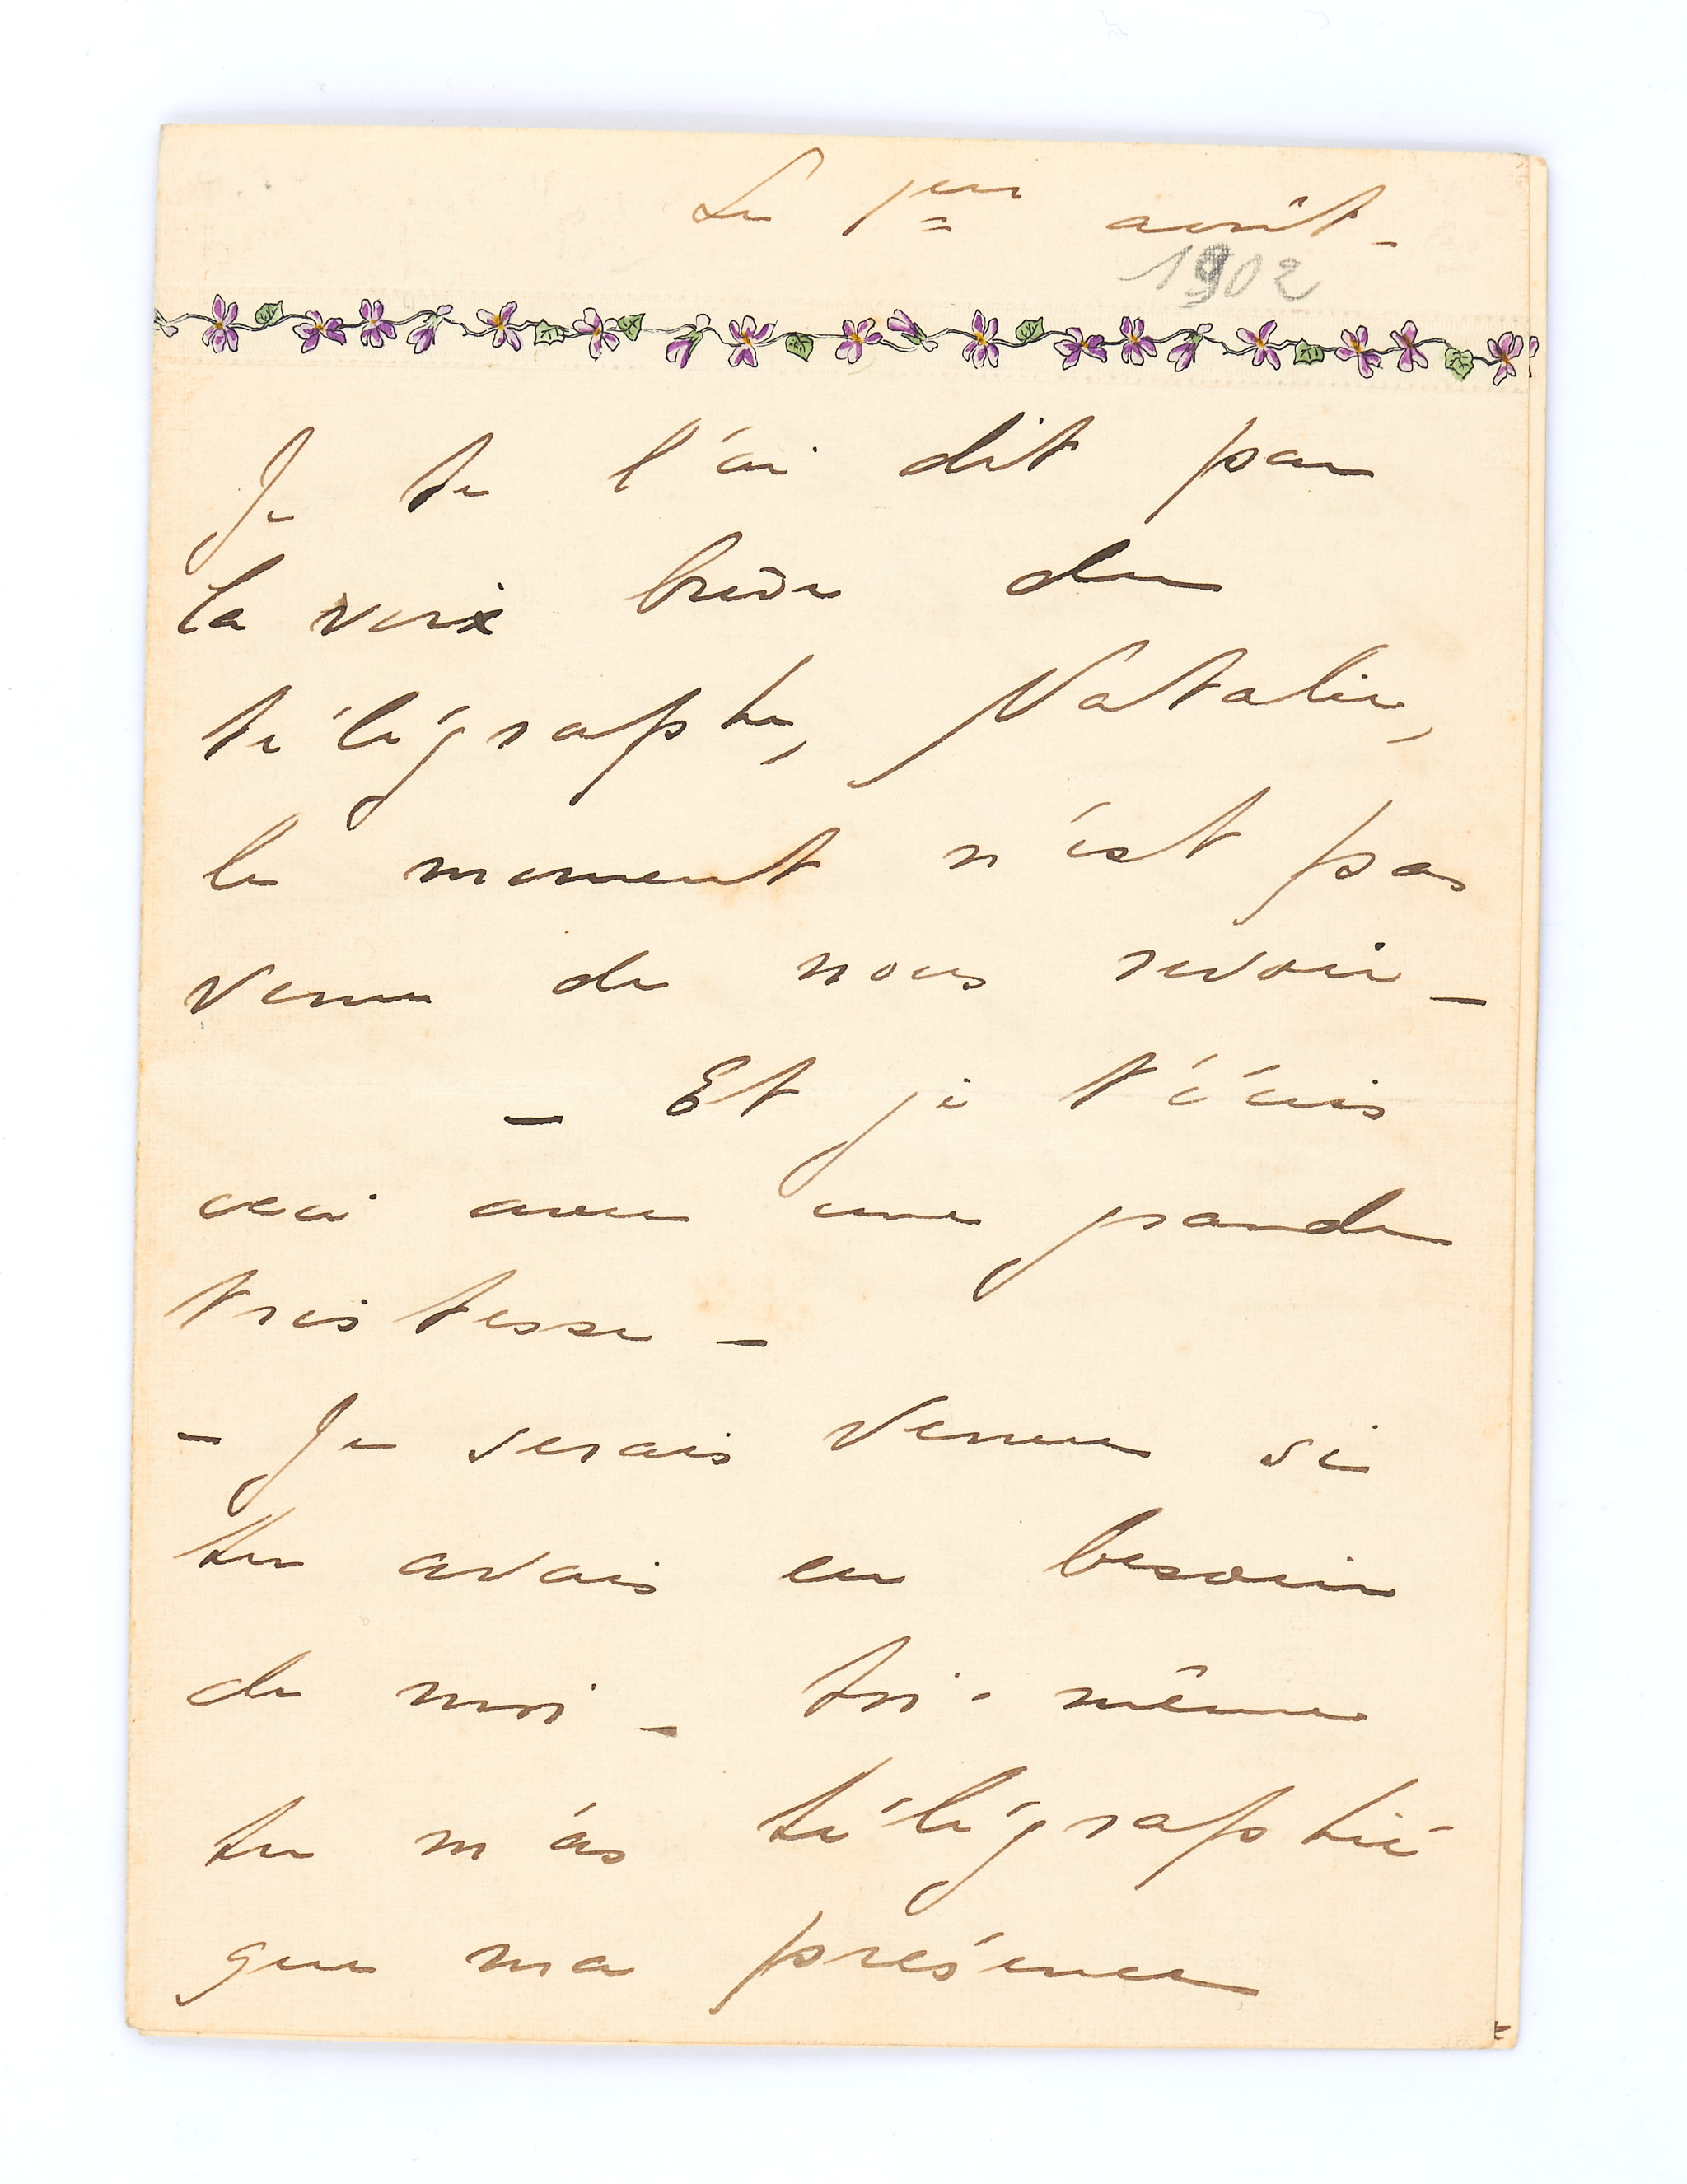 Le 1er août -
1902
Je te l'ai dit par
la voix brève du
télégraphe, Natalie,
le moment n'est pas
venu de nous revoir _
_ Et je t'écris
ceci avec une grande
tristesse _
- Je serais venue si
tu avais eu besoin
de moi _ toi-même
tu m'as télégraphié
que ma présence